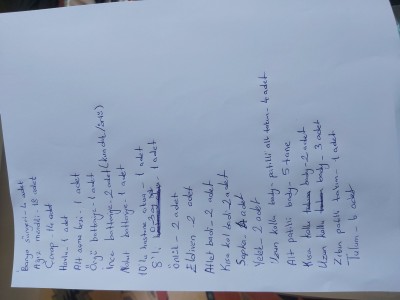 Banyo süngeri - 4 adet
Ağız mendili - 18 adet
Çorap - 14 adet
Hırka - 1 adet
Alt açma bezi - 1 adet
Örgü battaniye - 1 adet
İnce battaniye - 2 adet (kundak/
Nihale battaniye - 1 adet
10'lu hastane çıkışı - 1 adet
8'li - 1 adet
Önlük - 2 adet
Eldiven - 2 adet
Atlet badi - 2 adet
Kısa kol badi - 2 adet
Şapka - 4 adet
Yelek - 2 adet
Uzun kollu body patikli alt takım - 4 adet
Alt patikli body - 5 tane
Kısa kollu body - 2 adet
Uzun kollu body - 3 adet
Zıbın patikli takım - 1 adet
Tulum - 6 adet